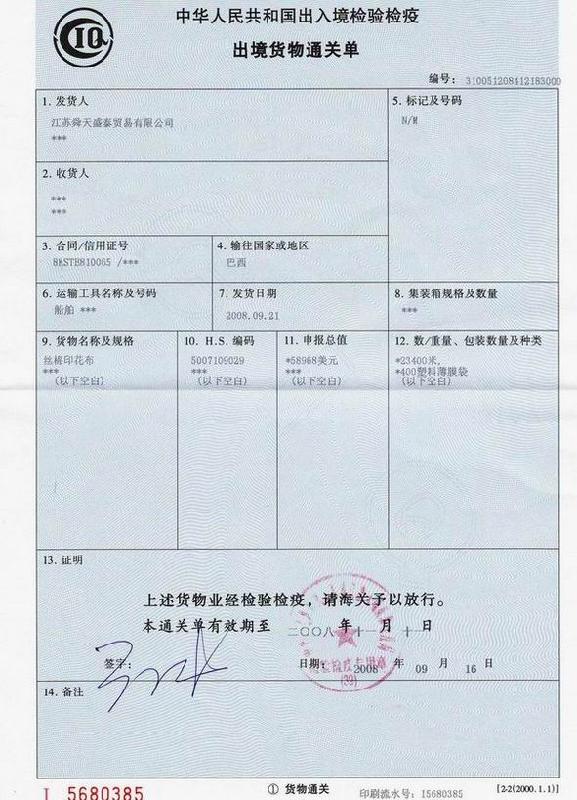 CIQ
中华人民共和国出入境检验检疫
出境货物通关单
编号: 310051208412183000
1. 发货人
江苏舜天盛泰贸易有限公司
***
5. 标记及号码
N/M
2. 收货人
***
***
3. 合同/信用证号
/***
4. 输往国家或地区
巴西
6. 运输工具名称及号码
船舶 ***
7. 发货日期
2008.09.21
8. 集装箱规格及数量
***
9. 货物名称及规格
丝棉印花布
***
(以下空白)
10. H.S. 编码
5007109029
***
(以下空白)
11. 申报总值
*58968美元
***
(以下空白)
12. 数/重量、包装数量及种类
*23400米,
*400塑料薄膜袋
(以下空白)
13. 证明
上述货物业经检验检疫,请海关予以放行。
本通关单有效期至 二〇〇八 年 十一 月 十一 日
签字:
日期: 2008 年 09 月 16 日
检验检疫专用章
(39)
14. 备注
I 5680385
① 货物通关
印刷流水号: I5680385
[2-2(2000.1.1)]